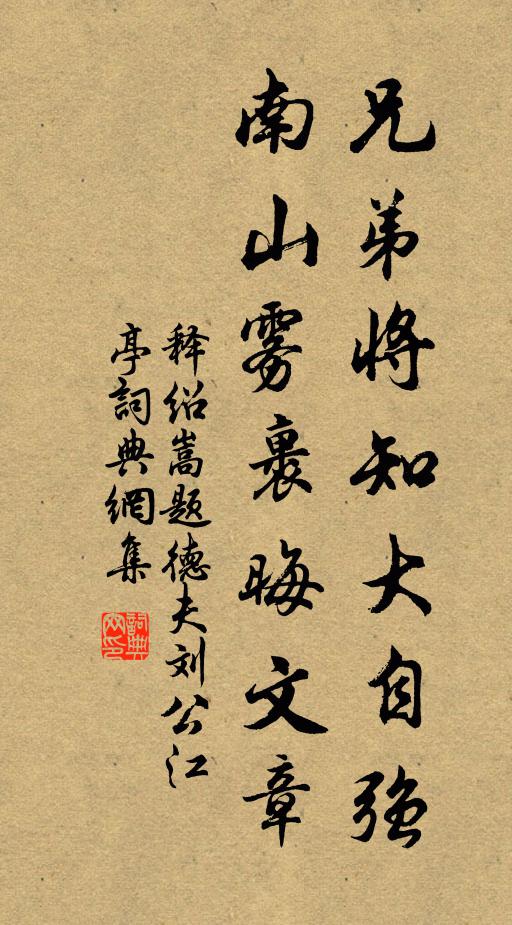 兄弟将知大自强
南山雾裹晦文章
释绍嵩题德夫刘公江
亭詞典網集
詞典網印